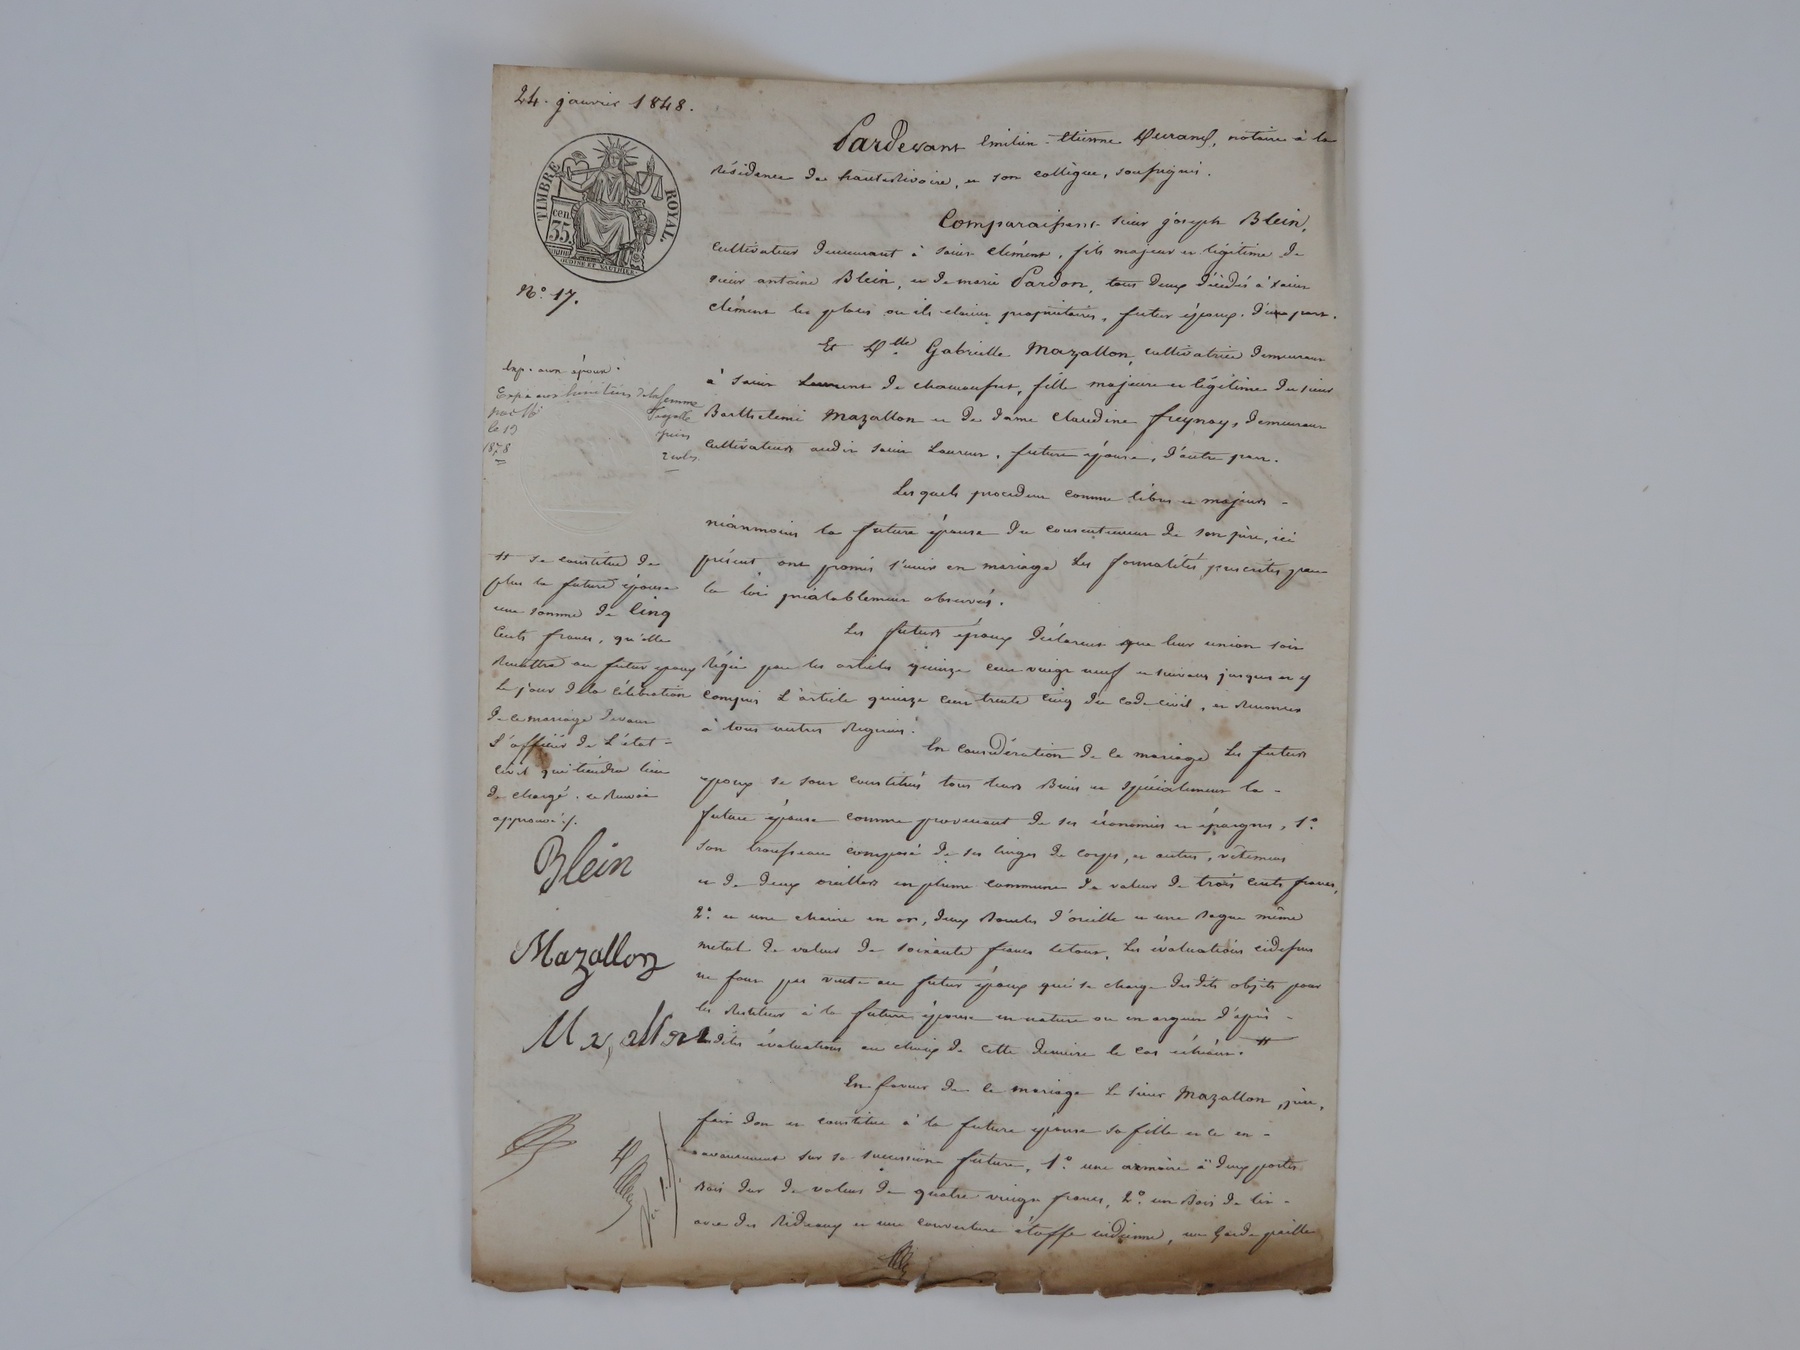 24. janvier 1848.
TIMBRE ROYAL.
cen.
35.
N.º 17.
Pardevant Emilien-Etienne Durand, notaire à la
Résidence de hauterivoire, et son collègue, soussignés.
Comparaissent sieur joseph Blein,
cultivateur demeurant à saint clément, fils majeur et légitime de
sieur antoine Blein, et de marie Pardon, tous deux décédés à saint
clément les places où ils étaient propriétaires, futur époux. d'une part.
Et Dlle Gabrielle Mazallon, cultivatrice demeurant
à saint Laurent de chamousset, fille majeure et légitime du sieur
Barthelemi Mazallon et de dame claudine freynay, demeurant
cultivateurs audit saint Laurent, future épouse, d'autre part.
Les quels procedant comme libres et majeurs -
néanmoins la future épouse du consentement de son père, ici
présent ont promis s'unir en mariage les formalités prescrites par
la loi préalablement observées.
Les futurs époux déclarent que leur union soit
Régie par les articles quinze cent vingt neuf et suivans jusques et y
compris l'article quinze cent trente cinq du code civil, et Renoncer
à tous autres Régimes.
En considération de ce mariage les futurs
époux se sont constitués tous leurs Biens et spécialement la -
future épouse comme provenant de ses économies et épargnes, 1.º
son trousseau composé de ses linges de corps, et autres, vêtemens
et de deux oreillers en plume commune de valeur de trois cents francs,
2.º et une chaine en or, deux Boucles d'oreille et une Bague même
metal de valeur de soixante francs letout, Les évaluations cidessus
ne font pas vente au futur époux qui se charge desdits objets pour
les Restituer à la future épouse en nature ou en argent d'après -
lesdites évaluations au choix de cette derniere le cas échéant. #
En faveur de ce mariage le sieur Mazallon, père,
fait don et constitue à la future épouse sa fille et ce en -
avancement sur sa succession future, 1.º une armoire à deux portes
Bois dur de valeur de quatre vingt francs, 2.º un Bois de lit -
avec des Rideaux et une couverture étoffe indienne, un Garde paille
Exp. aux époux.
Exp. aux héritiers de la femme
le 19
1878
# se constitue de
plus la future épouse
une somme de Cinq
Cents francs, qu'elle
Remettra au futur époux
le jour de la célébration
de ce mariage devant
l'officier de l'état -
civil qui tiendra lieu
de charge. ce Renvoi
approuvé ./.
Blein
Mazallon
Mazallon